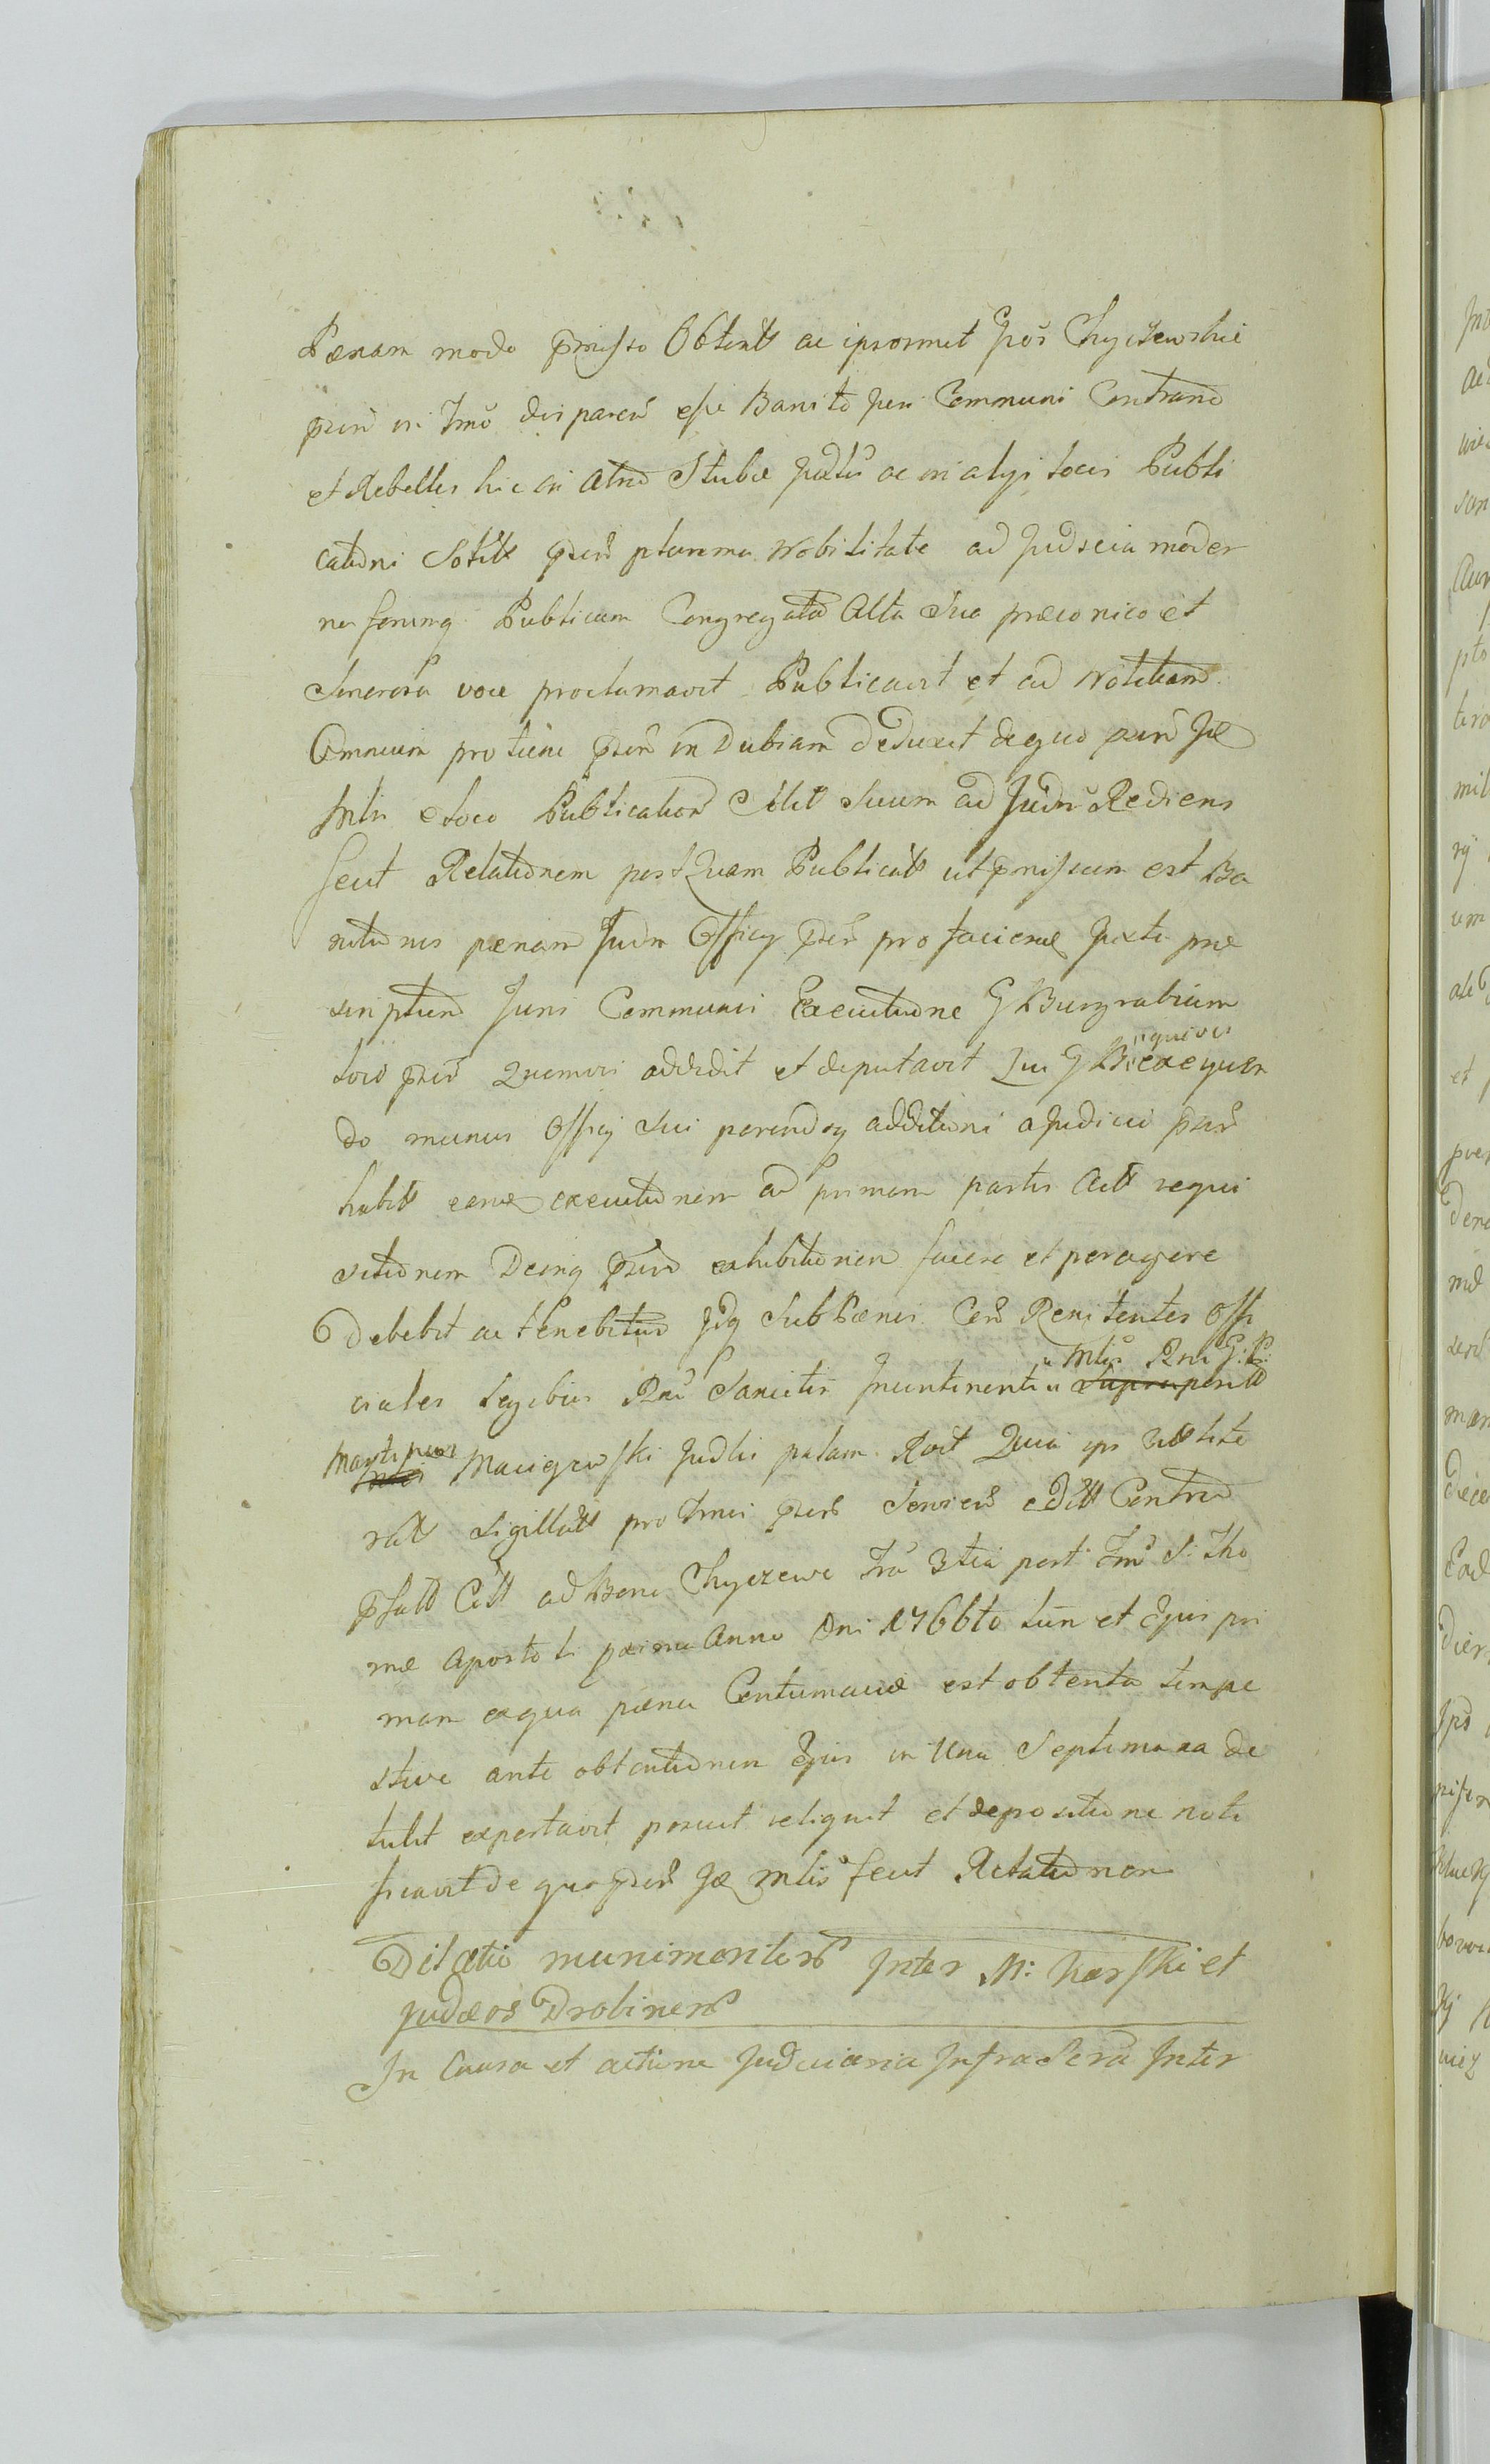 Pænam modo pmisso Obtent ac ipsosmet Gros Chyczewskie
psen in Tmo disparen esse Banito Juri Communi Contrand
et Rebelles hic in Atrio Stubæ Judlis ac in alys locis Publi
cationi Solitt psen plurima Nobilitate ad Judicia moder
na forumq Publicum Congregata Alta sua præconico et
Sonorosa voce proclamavit Publicavit et ad Notitiam
Omnium protunc psen indubiam deduxit de quo psen Je
Mlis e loco Publication solit suum ad Judm Rediens
fecit Relationem postquam Publicatt ut pmissum est Ba
nitionis pænam Judm Officy psen pro faciend Juxta præ
scriptum Juris Communis Executione G Burgrabium
loci psen quemvis addidit et deputavit Qui G B quivis exequen
do munus Officy sui parendoq additioni a Judicio psen
habit eand executionem ad primam partis Act requi
sitionem Deinq psen exhibitionem facere et peragere
Debebit ac tenebitur Idq sub Pænis Con Renitentes Offi
ciales Legibus Rni Sancitis Incontinenti Mlis Rni G: P:
Martinus Maiigrowski Judlis palam Rvit Quia ips Duas litte
ratt sigillatt pro Tmis psen Serviend edit Contra
psatt Citt ad Bona Chyczewo Fra 3tia post Fm S: Tho
mæ Apostoli prima Anno Dni 1766to tum et Ejus pri
mam ex qua pæna Contumaciæ est obtenta tempe
stive ante obtentionem Ejus in Una Septimana de
tulit exportavit posuit reliquit et depositione noti
ficavit de quo psen Je Mlis fecit Relationem
Dilatio munimentor Inter M: Karski et
Judæos Drobinen
In Causa et actione Judiciaria Infra Scra Inter